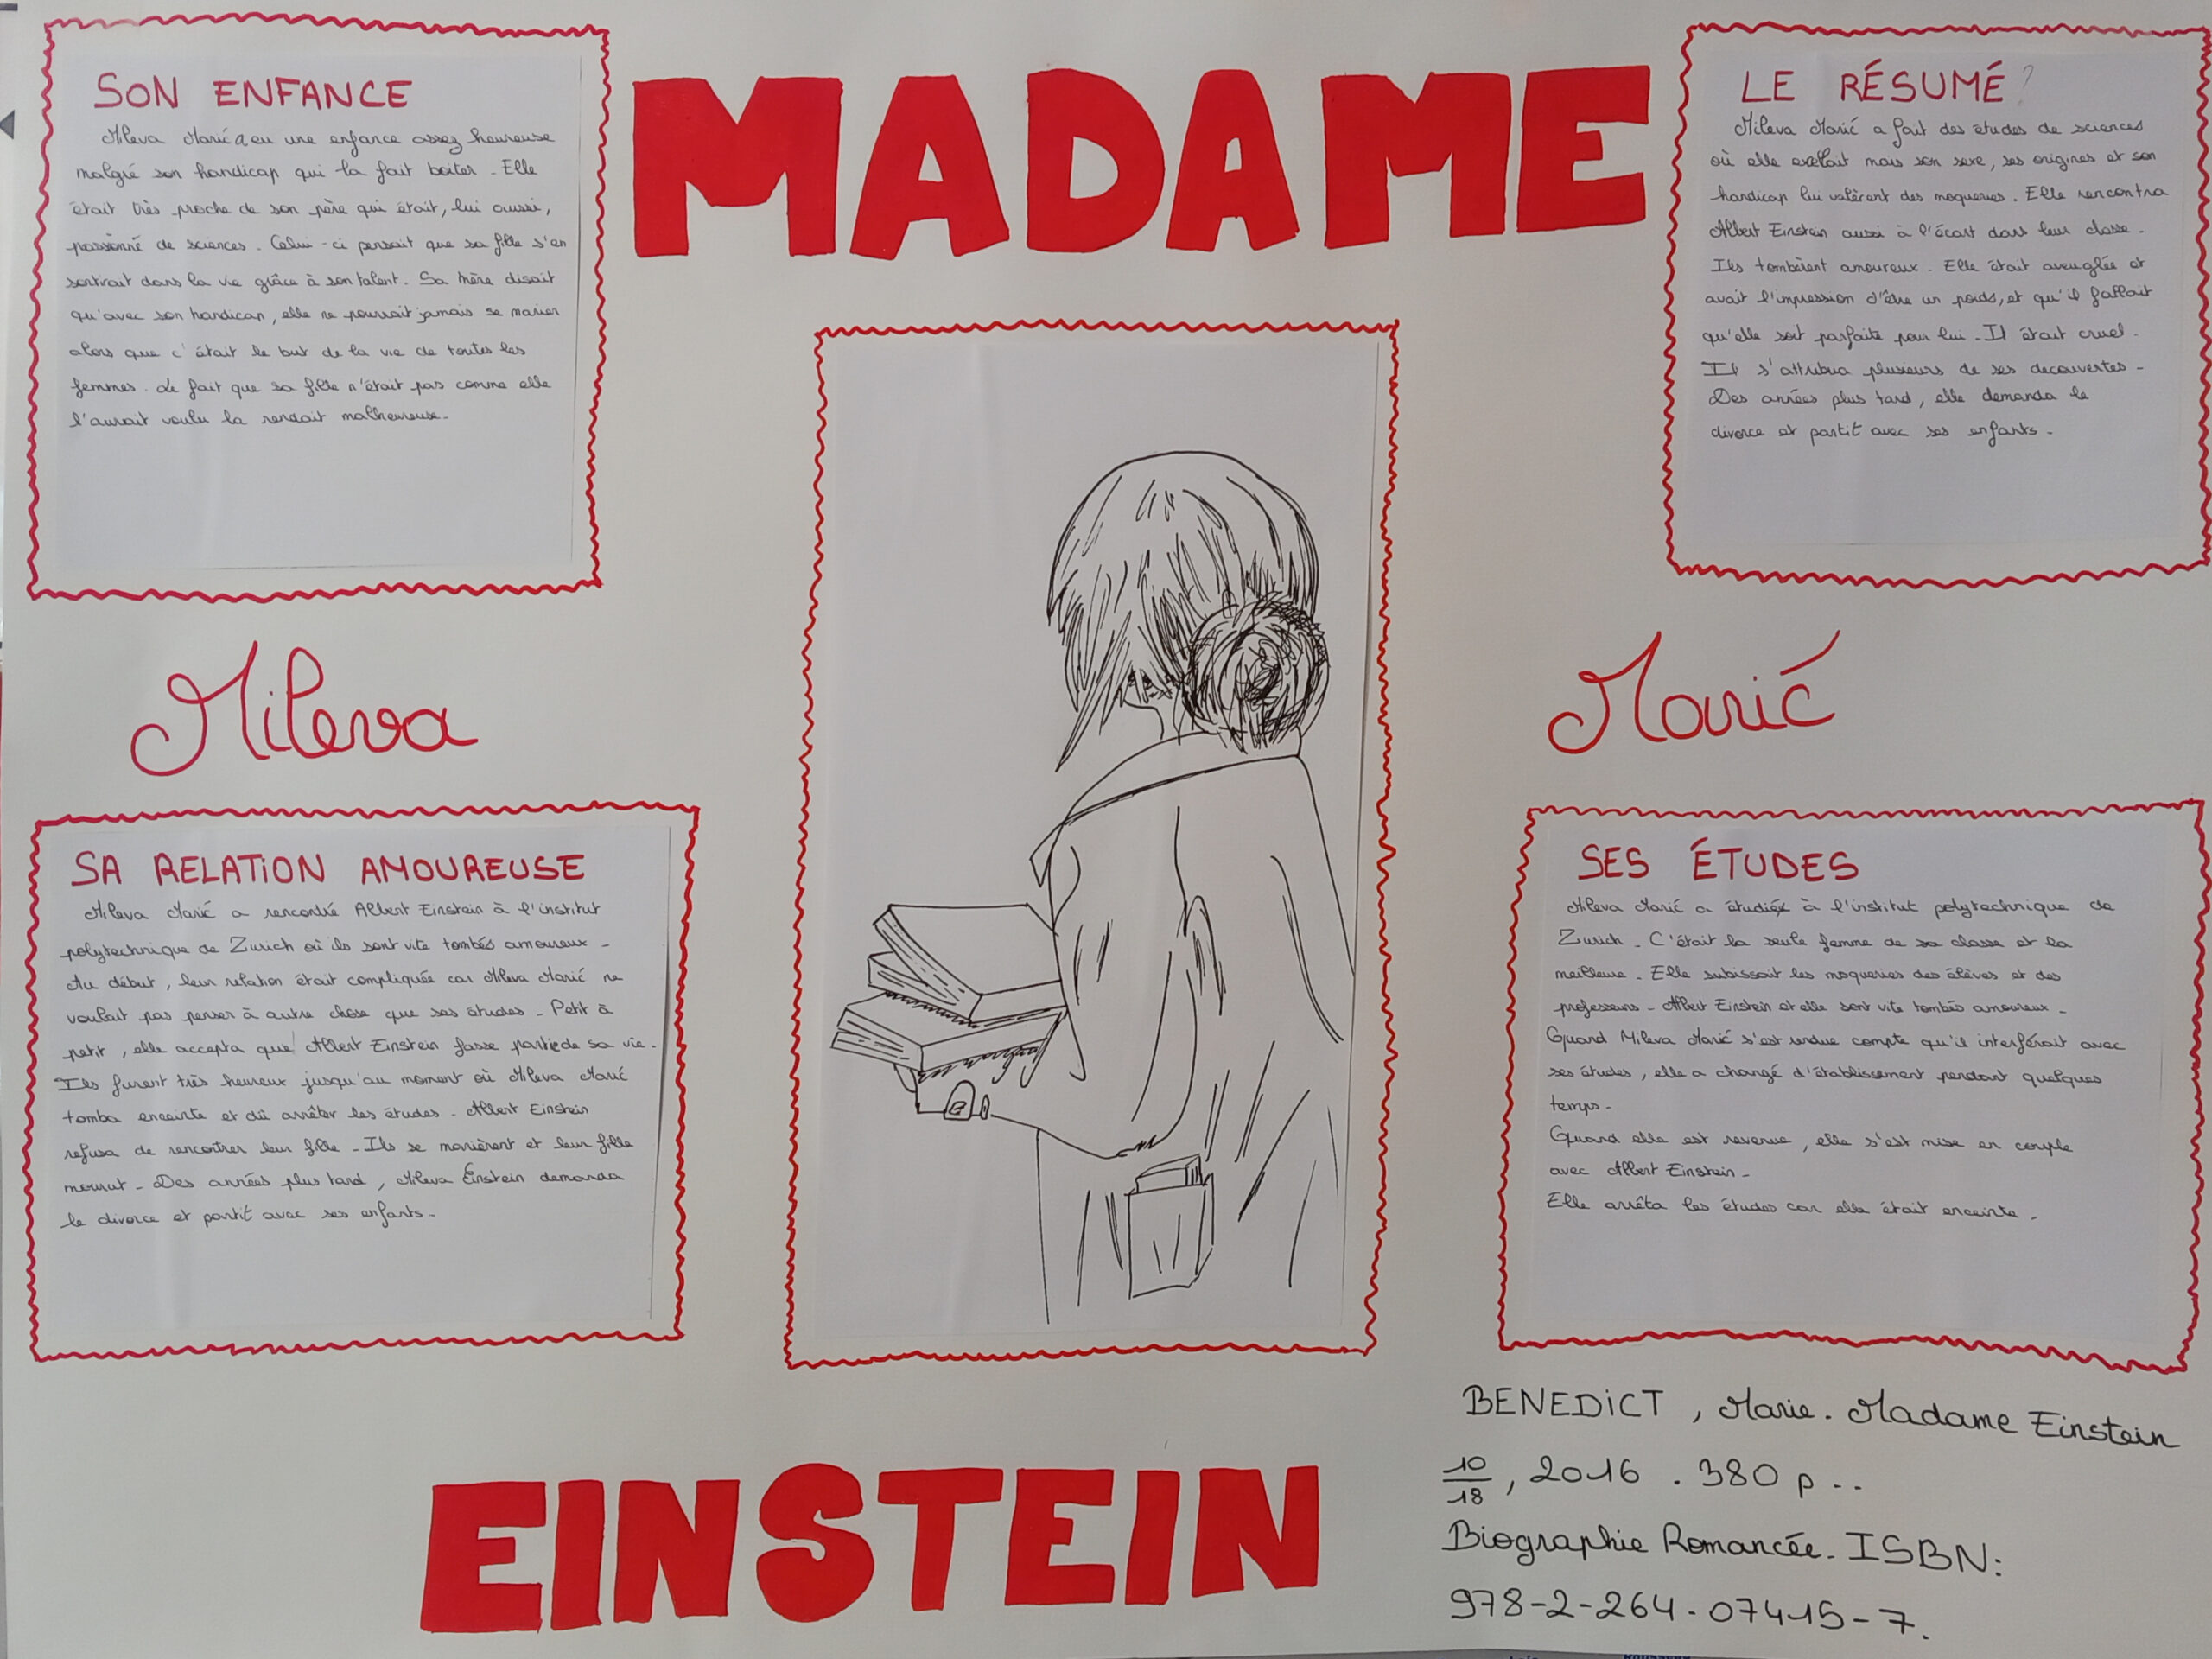 MADAME
SON ENFANCE
Mileva Marić a eu une enfance assez heureuse
malgré son handicap qui la fait boiter. Elle
était très proche de son père qui était, lui aussi,
passionné de sciences. Celui-ci pensait que sa fille s'en
sortirait dans la vie grâce à son talent. Sa mère disait
qu'avec son handicap, elle ne pourrait jamais se marier
alors que c'était le but de la vie de toutes les
femmes. Le fait que sa fille n'était pas comme elle
l'aurait voulu la rendait malheureuse.
LE RÉSUMÉ ?
Mileva Marić a fait des études de sciences
où elle exellait mais son sexe, ses origines et son
handicap lui valèrent des moqueries. Elle rencontra
Albert Einstein aussi à l'écart dans leur classe.
Ils tombèrent amoureux. Elle était aveuglée et
avait l'impression d'être un poids, et qu'il fallait
qu'elle soit parfaite pour lui. Il était cruel.
Il s'attribua plusieurs de ses decouvertes.
Des années plus tard, elle demanda le
divorce et partit avec ses enfants.
Mileva
Marić
SA RELATION AMOUREUSE
Mileva Marić a rencontré Albert Einstein à l'institut
polytechnique de Zurich où ils sont vite tombés amoureux.
Au début, leur relation était compliquée car Mileva Marić ne
voulait pas penser à autre chose que ses études. Petit à
petit, elle accepta que Albert Einstein fasse partie de sa vie.
Ils furent très heureux jusqu'au moment où Mileva Marić
tomba enceinte et dû arrêter les études. Albert Einstein
refusa de rencontrer leur fille. Ils se marièrent et leur fille
mourut. Des années plus tard, Mileva Einstein demanda
le divorce et partit avec ses enfants.
SES ÉTUDES
Mileva Marić a étudié à l'institut polytechnique de
Zurich. C'était la seule femme de sa classe et la
meilleure. Elle subissait les moqueries des élèves et des
professeurs. Albert Einstein et elle sont vite tombés amoureux.
Quand Mileva Marić s'est rendue compte qu'il interférait avec
ses études, elle a changé d'établissement pendant quelques
temps.
Quand elle est revenue, elle s'est mise en couple
avec Albert Einstein.
Elle arrêta les études car elle était enceinte.
EINSTEIN
BENEDICT, Marie. Madame Einstein
10/18, 2016. 380 p..
Biographie Romancée. ISBN:
978-2-264-07415-7.